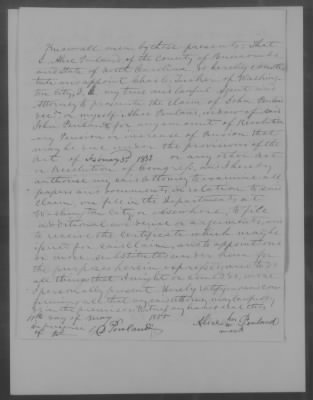 Know all men by these presents, That
I, Alice Penland of the County of Buncombe
and State of North Carolina do hereby constitute
and appoint Chas. C. Tucker of Washington
City, D.C. my true and lawful Agent and
Attorney to prosecute the claim of John Penland
decd or myself Alice Penland, widow of said
John Penland for any amount of Revolutionary
Pension or increase of Pension that
may be due under the provisions of the
Act of February 3d 1853 or any other Act
or Resolution of Congress, and I hereby
authorize my said Attorney to examine all
papers and documents in relation to said
claim, on file in the Departments at
Washington City or elsewhere, to file
additional evidence or arguments, and
to receive the certificate which may be
issued for said claim, and to appoint one
or more substitutes under him for
the purposes herein expressed, and to do
all things that I might or could do, were
I personally present. Hereby ratifying and confirming
all that my said attorney may lawfully
do in the premises. Witness my hand and seal this
11th day of May 1855
In presence
of
Penland
Alice her Penland
mark